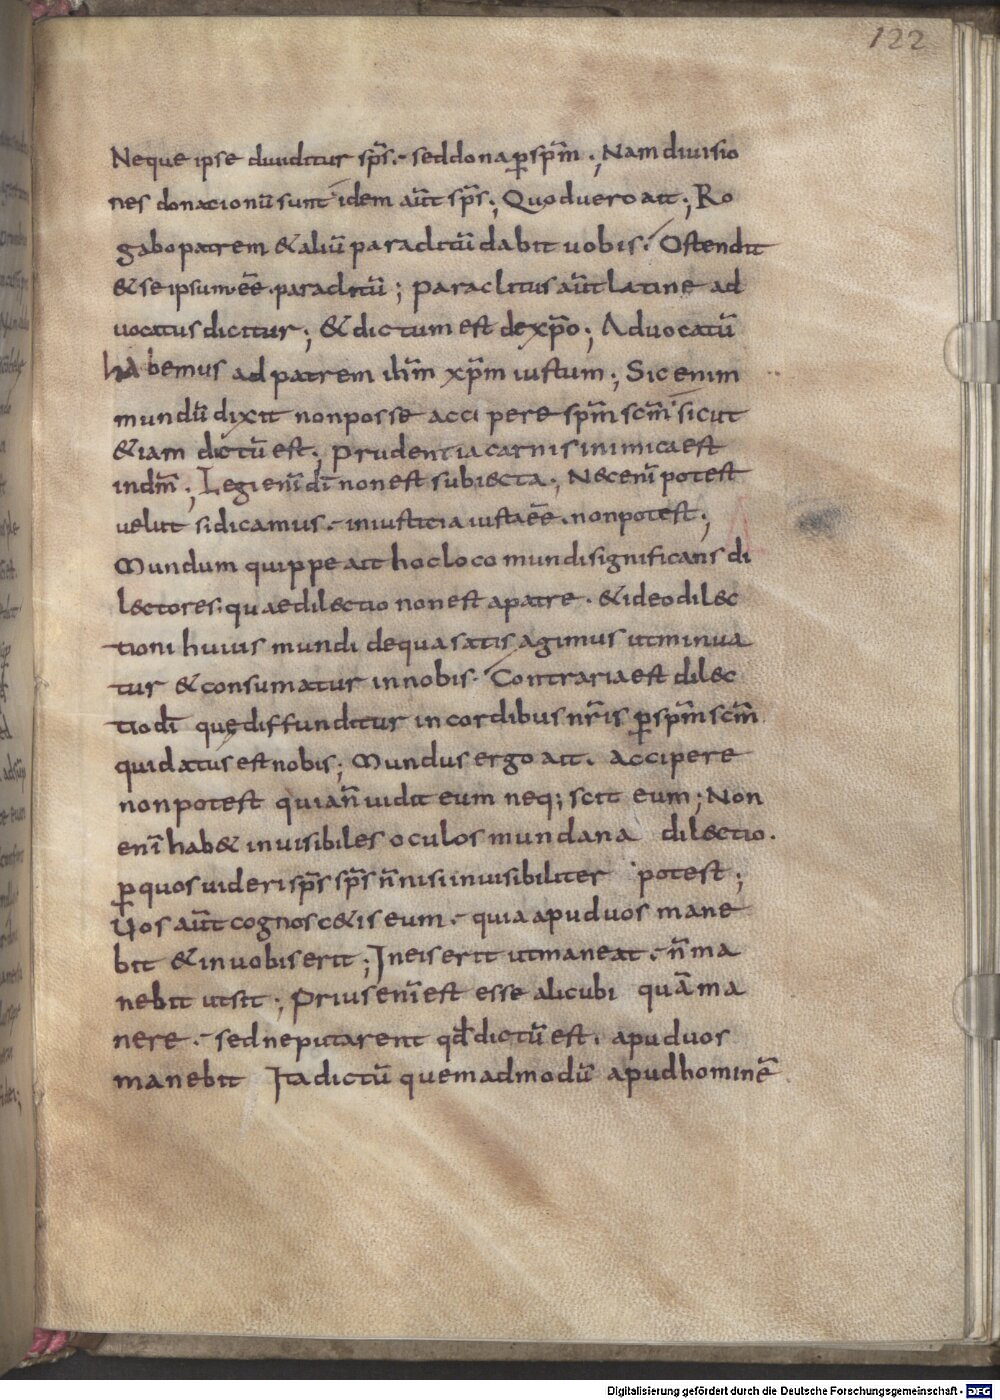 122
Neque ipse diuiditur sp̄s.- sed dona ꝑ sp̄m ; Nam diuisio
nes donacionū sunt idem aūt sp̄s ; Quod uero ait ; Ro
gabo patrem & aliū paraclitū dabit uobis . Ostendit
& se ipsum ēē . paraclitū ; paraclitus aūt latine ad
uocatus dicitur ; & dictum est de xp̄o ; Aduocatū
habemus ad patrem ih̄m xp̄m iustum ; Sic enim
mundū dixit non posse accipere sp̄m sc̄m sicut
&iam dictū est ; prudentia carnis inimica est
in dm̄ ; Legi enī dī non est subiecta ; Nec enī potest
uelut si dicamus .- iniusticia iusta ēē . non potest ;
Mundum quippe ait hoc loco mundi significans di
lectores ; quae dilectio non est a patre . & ideo dilec
tioni huius mundi de qua satis agimus ut minua
tur & consumatur in nobis . Contraria est dilec
tio dī quę diffunditur in cordibus nr̄is ꝑ sp̄m sc̄m
qui datus est nobis ; Mundus ergo ait . accipere
non potest quia n̄ uidit eum neq; scit eum ; Non
enī hab& inuisibiles oculos mundana dilectio .
ꝑ quos uideri sp̄s sp̄s n̄ nisi inuisibiliter potest ;
Uos aūt cognosc&is eum .- quia apud uos mane
bit & in uobis erit ; In eis erit ut maneat .- n̄ ma
nebit ut sit ; prius enī est esse alicubi quā ma
nere .- sed ne putarent qd̄ dictū est . apud uos
manebit Ita dictū quemadmodū apud hominē
Digitalisierung gefördert durch die Deutsche Forschungsgemeinschaft - DFG